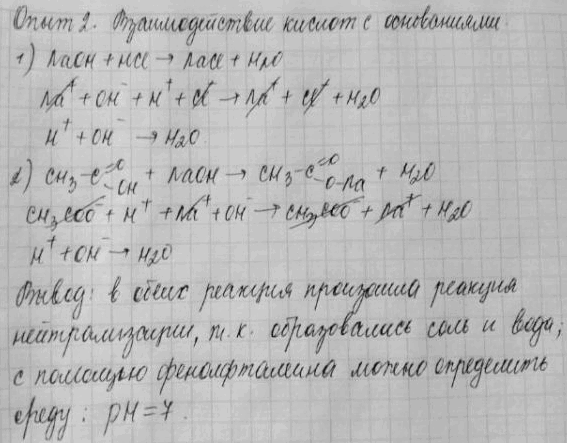 Опыт 2. Взаимодействие кислот с основаниями.
1) NaOH + HCl → NaCl + H₂O
Na⁺ + OH⁻ + H⁺ + Cl⁺ → Na⁺ + Cl⁺ + H₂O
H⁺ + OH⁻ → H₂O
2) CH₃-C=O-OH + NaOH → CH₃-C=O-O-Na + H₂O
CH₃COO⁻ + H⁺ + Na⁺ + OH⁻ → CH₃COO⁻ + Na⁺ + H₂O
H⁺ + OH⁻ → H₂O
Вывод: в обеих реакция произошла реакция
нейтрализации, т.к. образовались соль и вода;
с помощью фенолфталеина можно определить
среду: pH=7.